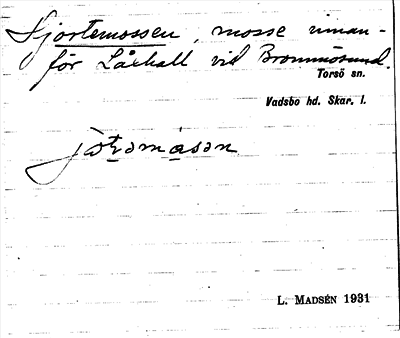 Hjortemossen, mosse innan-
för Laxhall vid Brommösund.
Torsö sn.
Vadsbo hd. Skar. l.
L. MADSÉN 1931